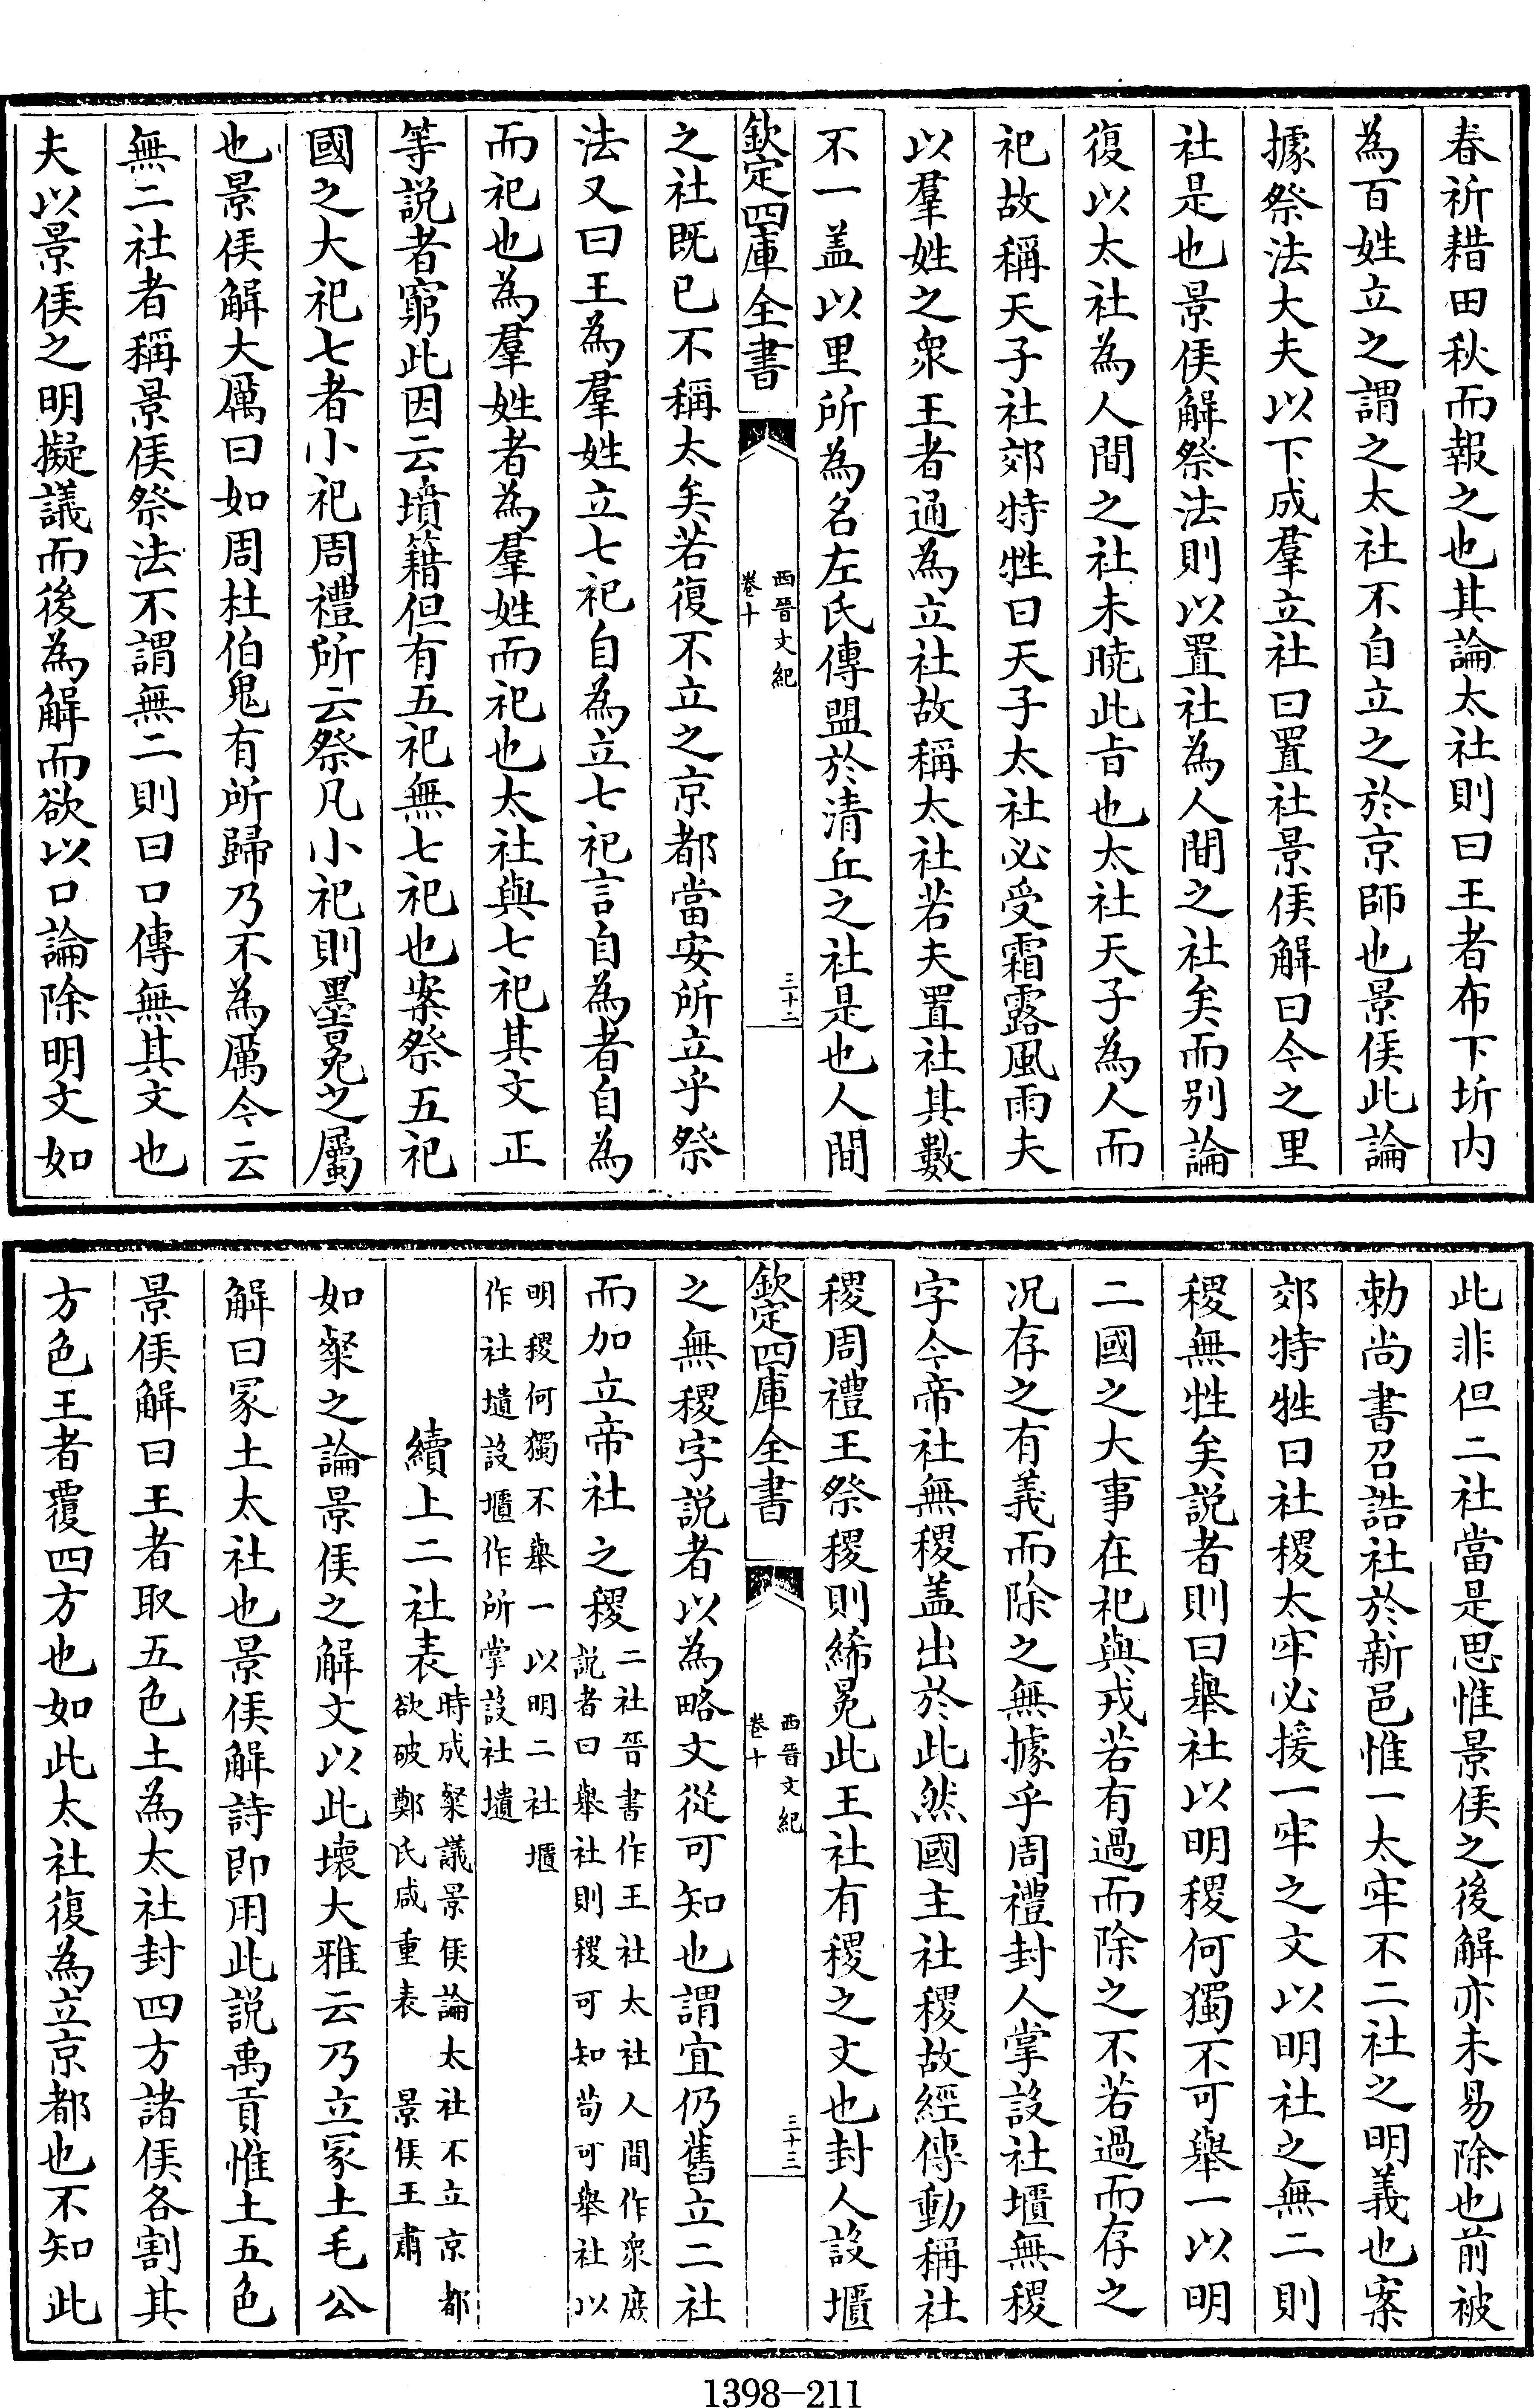 春祈耤田秋而報之也其論太社則曰王者布下圻内
為百姓立之謂之太社不自立之於京師也景侯此論
據祭法大夫以下成羣立社曰置社景侯解曰今之里
社是也景侯解祭法則以置社為人間之社矣而别論
復以太社為人間之社未曉此㫖也太社天子為人而
祀故稱天子社郊特牲曰天子太社必受霜露風雨夫
以羣姓之衆王者通為立社故稱太社若夫置社其數
不一盖以里所為名左氏傳盟於清丘之社是也人間
欽定四庫全書
西晉文紀
卷十
三十二
之社既已不稱太矣若復不立之京都當安所立乎祭
法又曰王為羣姓立七祀自為立七祀言自為者自為
而祀也為羣姓者為羣姓而祀也太社與七祀其文正
等説者窮此因云墳籍但有五祀無七祀也案祭五祀
國之大祀七者小祀周禮所云祭凡小祀則墨冕之屬
也景侯解大厲曰如周杜伯鬼有所歸乃不為厲今云
無二社者稱景侯祭法不謂無二則曰口傳無其文也
夫以景侯之明擬議而後為解而欲以口論除明文如
此非但二社當是思惟景侯之後解亦未易除也前被
勅尚書召誥社於新邑惟一太牢不二社之明義也案
郊特牲曰社稷太牢必援一牢之文以明社之無二則
稷無牲矣説者則曰舉社以明稷何獨不可舉一以明
二國之大事在祀與戎若有過而除之不若過而存之
况存之有義而除之無據乎周禮封人掌設社壝無稷
字今帝社無稷盖出於此然國主社稷故經傳動稱社
稷周禮王祭稷則絺冕此王社有稷之文也封人設壝
欽定四庫全書
西晉文紀
卷十
三十三
之無稷字説者以為略文從可知也謂宜仍舊立二社
而加立帝社之稷二社晉書作王社太社人間作衆庶
説者曰舉社則稷可知苟可舉社以
明稷何獨不舉一以明二社壝
作社壝設壝作所掌設社壝
續上二社表時成粲議景侯論太社不立京都
欲破鄭氏咸重表 景侯王肅
如粲之論景侯之解文以此壞大雅云乃立冢土毛公
解曰冢土太社也景侯解詩即用此説禹貢惟土五色
景侯解曰王者取五色土為太社封四方諸侯各割其
方色王者覆四方也如此太社復為立京都也不知此
1398-211